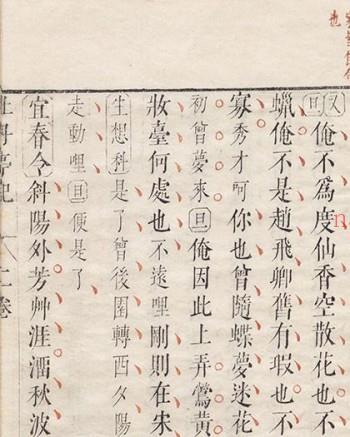 也
又旦俺不為度仙香空散花也不
蠟俺不是趙飛卿舊有瑕也不
寡秀才呵你也曾隨蝶夢迷花
初曾夢來旦俺因此上弄鶯黃
妝臺何處也不遠哩剛則在宋
生想科是了曾後園轉西夕陽
走動哩旦便是了
宜春令斜陽外芳艸涯秋波
牡丹亭記 二卷